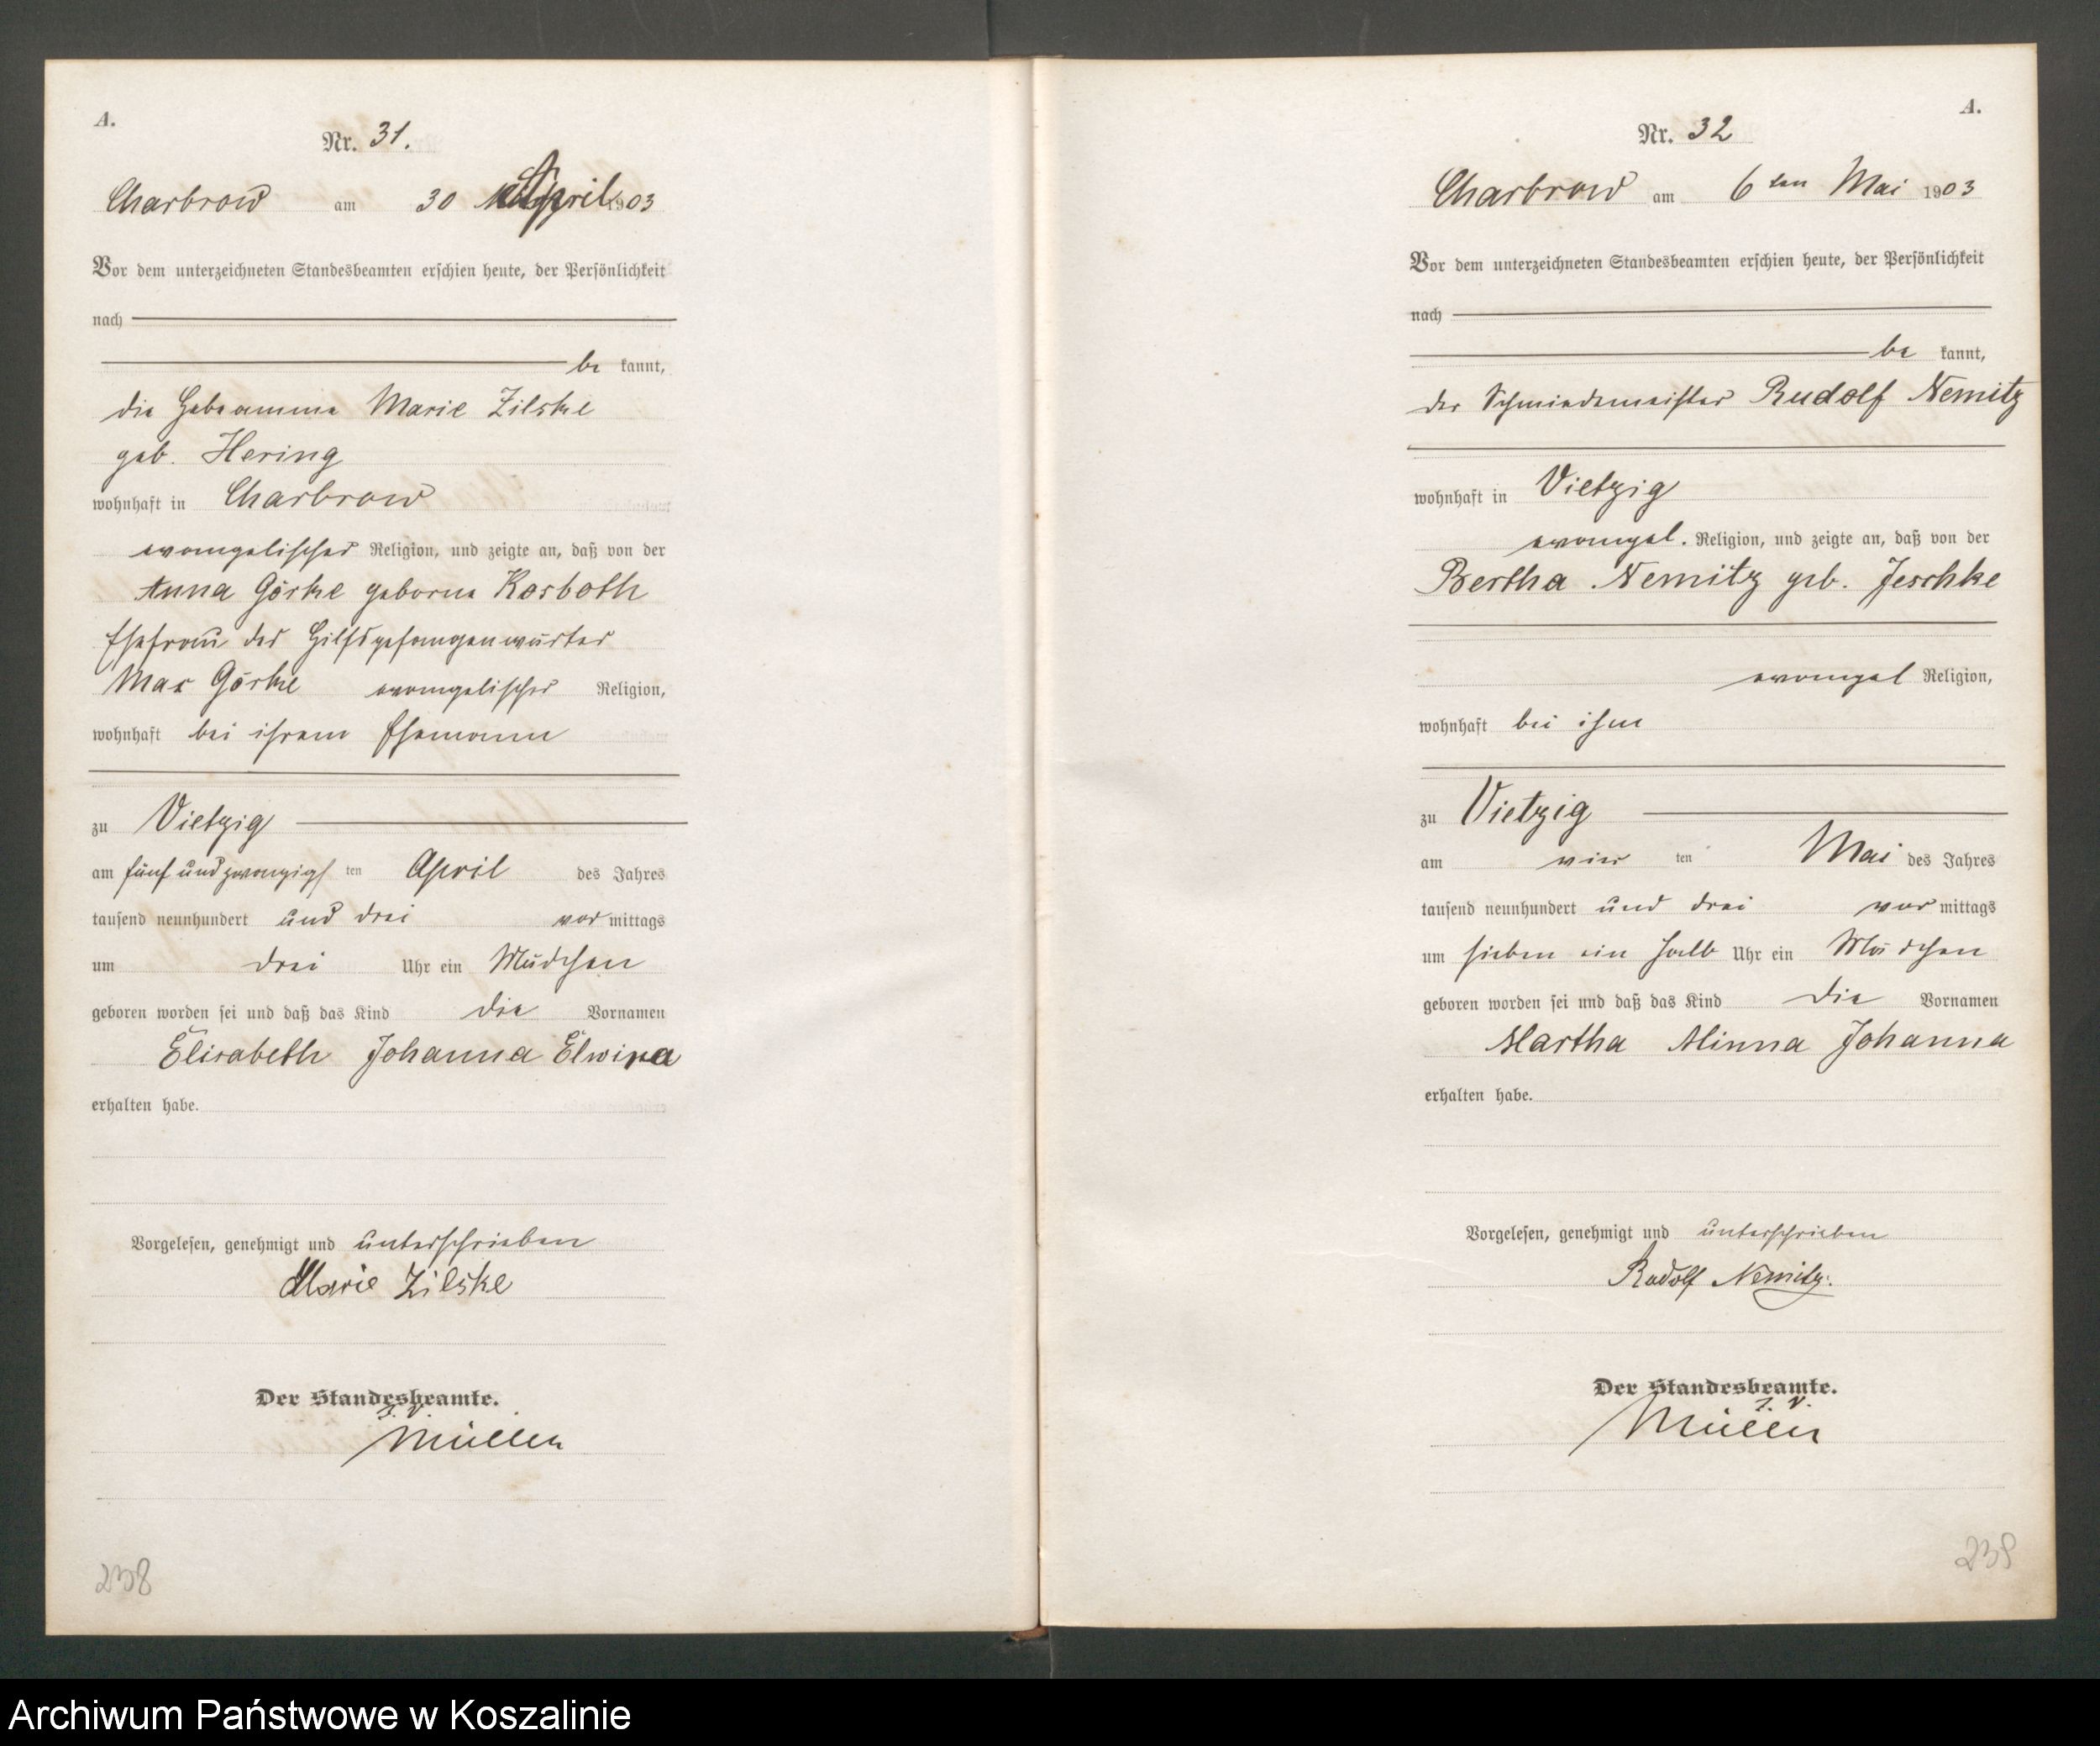 A.
Nr. 31.
Charbrow am 30 April 1903
Vor dem unterzeichneten Standesbeamten erschien heute, der Persönlichkeit
nach
be kannt,
die Hebeamme Marie Zilske
geb. Hering
wohnhaft in Charbrow
evangelischer Religion, und zeigte an, daß von der
Anna Görke geborne Kosboth
Ehefrau des Hilfsgefangenwärter
Max Görke evangelischer Religion,
wohnhaft bei ihrem Ehemann
zu Vietzig
am fünf und zwanzigsten April des Jahres
tausend neunhundert und drei vor mittags
um drei Uhr ein Mädchen
geboren worden sei und daß das Kind die Vornamen
Elisabeth Johanna Elwira
erhalten habe.
Vorgelesen, genehmigt und unterschrieben
Marie Zilske
Der Standesbeamte.
J. V.
Müller
238
A.
Nr. 32
Charbrow am 6ten Mai 1903
Vor dem unterzeichneten Standesbeamten erschien heute, der Persönlichkeit
nach
be kannt,
der Schmiedemeister Rudolf Nemitz
wohnhaft in Vietzig
evangel. Religion, und zeigte an, daß von der
Bertha Nemitz geb. Jeschke
evangel Religion,
wohnhaft bei ihm
zu Vietzig
am vier ten Mai des Jahres
tausend neunhundert und drei vor mittags
um sieben ein halb Uhr ein Mädchen
geboren worden sei und daß das Kind die Vornamen
Martha Minna Johanna
erhalten habe.
Vorgelesen, genehmigt und unterschrieben
Rudolf Nemitz.
Der Standesbeamte.
J. V.
Müller
239
Archiwum Państwowe w Koszalinie